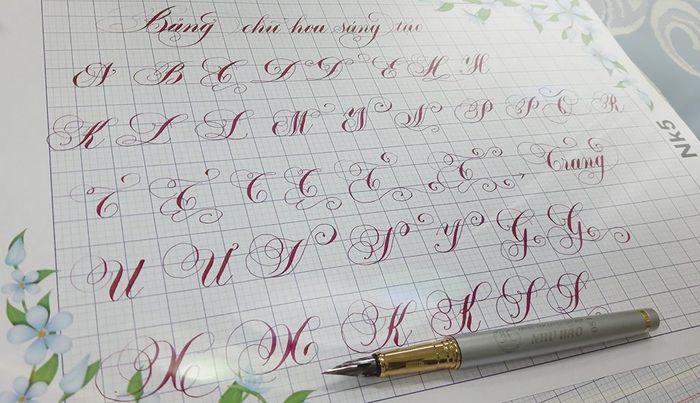 Bảng chữ hoa sáng tạo
A B C D D E H H
K L L M Y N P P C R
C C C C C C Trang
U Ư V P Y G G
H H K K S S
NK5
NHƯ HẢO